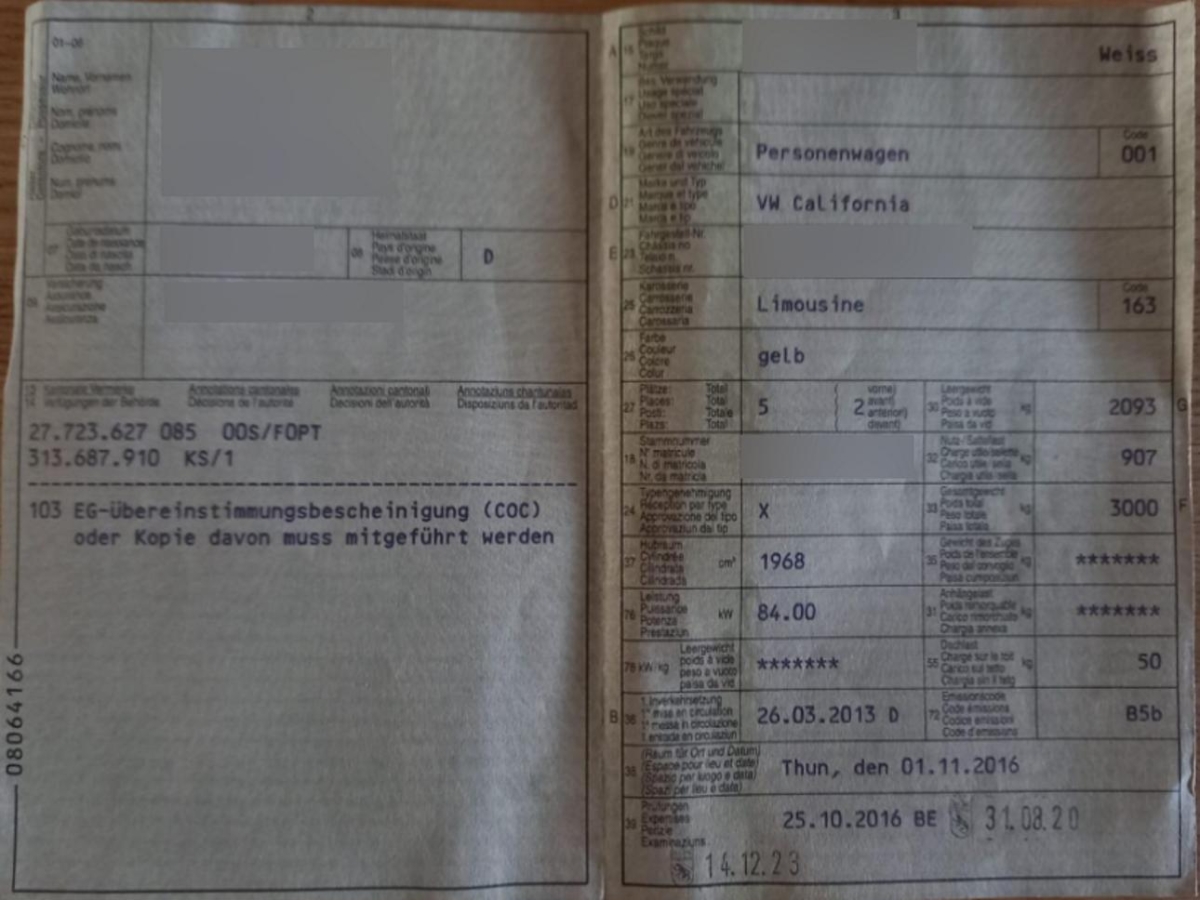 2
01-06
Name, Vornamen
Wohnort
Nom, prénoms
Domicile
Cognome, nomi
Domicilio
Num, prenums
Domicil
07
Geburtsdatum
Date de naissance
Data di nascita
Data da nasch.
08
Heimatstaat
Pays d'origine
Paese d'origine
Stadi d'origin
D
09
Versicherung
Assurance
Assicurazione
Assicuranza
Kantonale Vermerke
Verfügungen der Behörde
Annotations cantonales
Décisions de l'autorité
Annotazioni cantonali
Decisioni dell'autorità
Annotaziuns chantunalas
Disposiziuns da l'autoritad
27.723.627 085 OOS/FOPT
313.687.910 KS/1
103 EG-Übereinstimmungsbescheinigung (COC)
oder Kopie davon muss mitgeführt werden
08064166
3
A 15
Schild
Plaque
Targa
Numer
Weiss
17
Bes. Verwendung
Usage spécial
Uso speciale
Diever spezial
19
Art des Fahrzeugs
Genre de véhicule
Genere di veicolo
Gener dal vehichel
Personenwagen
Code
001
D 21
Marke und Typ
Marque et type
Marca e tipo
Marca e tip
VW California
E 23
Fahrgestell-Nr.
Châssis no
Telaio n.
Schassis nr.
25
Karosserie
Carrosserie
Carrozzeria
Carossaria
Limousine
Code
163
26
Farbe
Couleur
Colore
Colur
gelb
27
Plätze: Total
Places: Total
Posti: Totale
Plazs: Total
5
( vorne)
( 2 avant)
( anteriori)
( davant)
30
Leergewicht
Poids à vide
Peso a vuoto
Paisa da vid
kg
2093
G
18
Stammnummer
N° matricule
N. di matricola
Nr. da matricla
32
Nutz-/Sattellast
Charge utile/sellette
Carico utile/sella
Chargia utila/sella
kg
907
24
Typengenehmigung
Réception par type
Approvazione del tipo
Approvaziun dal tip
X
33
Gesamtgewicht
Poids total
Peso totale
Paisa totala
kg
3000
F
37
Hubraum
Cylindrée
Cilindrata
Cilindrada
cm³
1968
35
Gewicht des Zuges
Poids de l'ensemble
Peso del convoglio
Paisa cumposiziun
kg
*******
76
Leistung
Puissance
Potenza
Prestaziun
kW
84.00
31
Anhängelast
Poids remorquable
Carico rimorchiato
Chargia annexa
kg
*******
78 kW/kg
Leergewicht
poids à vide
peso a vuoto
paisa da vid
*******
55
Dachlast
Charge sur le toit
Carico sul tetto
Chargia sin il tetg
kg
50
B 36
1. Inverkehrsetzung
1re mise en circulation
1a messa in circolazione
1. entrada en circulaziun
26.03.2013 D
72
Emissionscode
Code émissions
Codice emissioni
Code d'emissiuns
B5b
38
(Raum für Ort und Datum)
(Espace pour lieu et date)
(Spazio per luogo e data)
(Spazi per lieu e data)
Thun, den 01.11.2016
39
Prüfungen
Expertises
Perizie
Examinaziuns
25.10.2016 BE 31.08.20
14.12.23